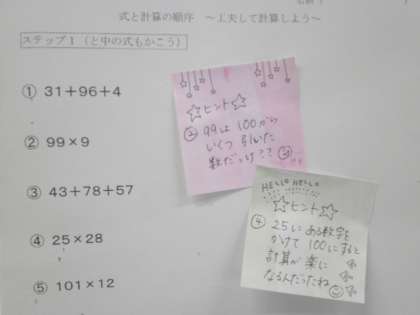 式と計算の順序 ～工夫して計算しよう～
ステップ1（と中の式もかこう）
① 31＋96＋4
② 99×9
③ 43＋78＋57
④ 25×28
⑤ 101×12
☆ヒント☆
② 99は 100から
いくつ 引いた
数だっけ??
HELLO HELLO
☆ヒント☆
④ 25に ある数字を
かけて 100にすると
計算が 楽に
なるんだったね